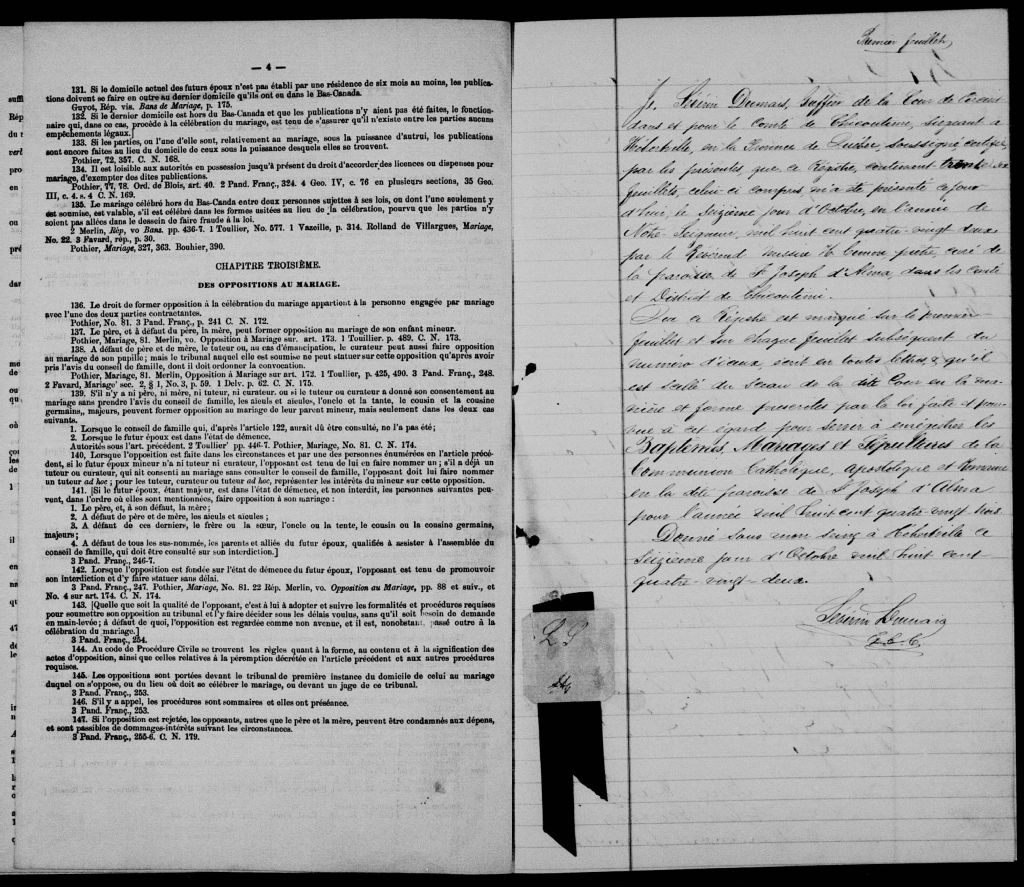 — 4 —
131. Si le domicile actuel des futurs époux n'est pas établi par une résidence de six mois au moins, les publica-
tions doivent se faire en outre au dernier domicile qu'ils ont eu dans le Bas-Canada.
Guyot, Rép. vis. Bans de Mariage, p. 175.
132. Si le dernier domicile est hors du Bas-Canada et que les publications n'y aient pas été faites, le fonction-
naire qui, dans ce cas, procède à la célébration du mariage, est tenu de s'assurer qu'il n'existe entre les parties aucuns
empêchements légaux.]
133. Si les parties, ou l'une d'elle sont, relativement au mariage, sous la puissance d'autrui, les publications
sont encore faites au lieu du domicile de ceux sous la puissance desquels elles se trouvent.
Pothier, 72, 357. C. N. 168.
134. Il est loisible aux autorités en possession jusqu'à présent du droit d'accorder des licences ou dispenses pour
mariage, d'exempter des dites publications.
Pothier, 77, 78. Ord. de Blois, art. 40. 2 Pand. Franç., 324. 4 Geo. IV, c. 76 en plusieurs sections, 35 Geo.
III, c. 4. s. 4 C. N. 169.
135. Le mariage célébré hors du Bas-Canda entre deux personnes sujettes à ses lois, ou dont l'une seulement y
est soumise, est valable, s'il est célébré dans les formes usitées au lieu de la célébration, pourvu que les parties n'y
soient pas allées dans le dessein de faire fraude à la loi.
2 Merlin, Rép, vo Bans. pp. 436-7. 1 Toullier, No. 577. 1 Vazeille, p. 314. Rolland de Villargues, Mariage,
No. 22. 3 Favard, rép., p. 30.
Pothier, Mariage, 327, 363. Bouhier, 390.
CHAPITRE TROISIÈME.
DES OPPOSITIONS AU MARIAGE.
136. Le droit de former opposition à la célébration du mariage appartient à la personne engagée par mariage
avec l'une des deux parties contractantes.
Pothier, No. 81. 3 Pand. Franç., p. 241 C. N. 172.
137. Le père, et à défaut du père, la mère, peut former opposition au mariage de son enfant mineur.
Pothier, Mariage, 81. Merlin, vo. Opposition à Mariage sur. art. 173. 1 Toullier. p. 489. C. N. 173.
138. A défaut de père et de mère, le tuteur ou, au cas d'émancipation, le curateur peut aussi faire opposition
au mariage de son pupille; mais le tribunal auquel elle est soumise ne peut statuer sur cette opposition qu'après avoir
pris l'avis du conseil de famille, dont il doit ordonner la convocation.
Pothier, Mariage, 81. Merlin, Opposition à Mariage sur art. 172. 1 Toullier, p. 425, 490. 3 Pand. Franç., 248.
2 Favard, Mariage' sec. 2, § 1, No. 3, p. 59. 1 Delv. p. 62. C. N. 175.
139. S'il n'y a ni père, ni mère, ni tuteur, ni curateur. ou si le tuteur ou curateur a donné son consentement au
mariage sans prendre l'avis du conseil de famille, les aïeuls et aïeules, l'oncle et la tante, le cousin et la cousine
germains,, majeurs, peuvent former opposition au mariage de leur parent mineur, mais seulement dans les deux cas
suivants.
1. Lorsque le conseil de famille qui, d'après l'article 122, aurait dû être consulté, ne l'a pas été;
2. Lorsque le futur époux est dans l'état de démence.
Autorités sous l'art. précédent. 2 Toullier' pp. 446-7. Pothier, Mariage, No. 81. C. N. 174.
140. Lorsque l'opposition est faite dans les circonstances et par une des personnes énumérées en l'article précé-
dent, si le futur époux mineur n'a ni tuteur ni curateur, l'opposant est tenu de lui en faire nommer un; s'il a déjà un
tuteur ou curateur, qui ait consenti au mariage sans consulter le conseil de famille, l'opposant doit lui faire nommer
un tuteur ad hoc; pour les tuteur, curateur ou tuteur ad hoc, représenter les intérêts du mineur sur cette opposition.
141. [Si le futur époux, étant majeur, est dans l'état de démence, et non interdit, les personnes suivantes peu-
vent, dans l'ordre où elles sont mentionnées, faire opposition à son mariage:
1. Le père, et, à son défaut, la mère;
2. A défaut de père et de mère, les aïeuls et aïeules;
3. A défaut de ces derniers, le frère ou la sœur, l'oncle ou la tente, le cousin ou la cousine germains,
majeurs;
4. A défaut de tous les sus-nommés, les parents et alliés du futur époux, qualifiés à assister à l'assemblée du
conseil de famille, qui doit être consulté sur son interdiction.]
3 Pand. Franç., 246-7.
142. Lorsque l'opposition est fondée sur l'état de démence du futur époux, l'opposant est tenu de promouvoir
son interdiction et d'y faire statuer sans délai.
3 Pand. Franç., 247. Pothier, Mariage, No. 81. 22 Rép. Merlin, vo. Opposition au Mariage, pp. 88 et suiv., et
No. 4 sur art. 174. C. N. 174.
143. [Quelle que soit la qualité de l'opposant, c'est à lui à adopter et suivre les formalités et procédures requises
pour soumettre son opposition au tribunal et l'y faire décider sous les délais voulus, sans qu'il soit besoin de demande
en main-levée; à défaut de quoi, l'opposition est regardée comme non avenue, et il est, nonobstant, passé outre à la
célébration du mariage.]
3 Pand. Franç., 254.
144. Au code de Procédure Civile se trouvent les règles quant à la forme, au contenu et à la signification des
actes d'opposition, ainsi que celles relatives à la péremption décrétée en l'article précédent et aux autres procédures
requises.
145. Les oppositions sont portées devant le tribunal de première instance du domicile de celui au mariage
duquel on s'oppose, ou du lieu où doit se célébrer le mariage, ou devant un juge de ce tribunal.
3 Pand. Franç., 253.
146. S'il y a appel, les procédures sont sommaires et elles ont préséance.
3 Pand. Franç., 253.
147. Si l'opposition est rejetée, les opposants, autres que le père et la mère, peuvent être condamnés aux dépens,
et sont passibles de dommages-intérêts suivant les circonstances.
3 Pand. Franç., 255-6. C. N. 179.
Premier feuillet,
Je, Sévérin Dumais, Greffier de la Cour de Circuit
dans et pour le Comté de Chicoutimi, siégeant à
Hébertville, en la Province de Québec, soussigné, certifie
par les présentes, que ce Régistre, contenant
feuillets, celui ci compris m'a été présenté ce jour
d'hui, le Seizième jour d'Octobre, en l'année de
Notre Seigneur, mil huit cent quatre-vingt deux
par le Révérend messire H. prêtre, curé de
la paroisse, de St Joseph d'Alma, dans les comté
et District de Chicoutimi.
Que ce Régistre est marqué sur le premier
feuillet et sur chaque feuillet subséquent du
numéro d'iceux, écrit en toutes lettres & qu'il
est scellé du Sceau de la dite Cour en la ma-
nière et forme prescrites par la loi faite et pour-
vue à cet égard pour servir à enregistrer les
Baptêmes, Mariages et Sépultures de la
Communion Catholique, Apostolique et Romaine
en la dite paroisse de St Joseph d'Alma
pour l'année mil huit cent quatre-vingt trois
Donné sous mon seing à Hébertville ce
Seizième jour d'Octobre mil huit cent
quatre-vingt-deux.
Sévérin Dumais
G. C. C.
L S